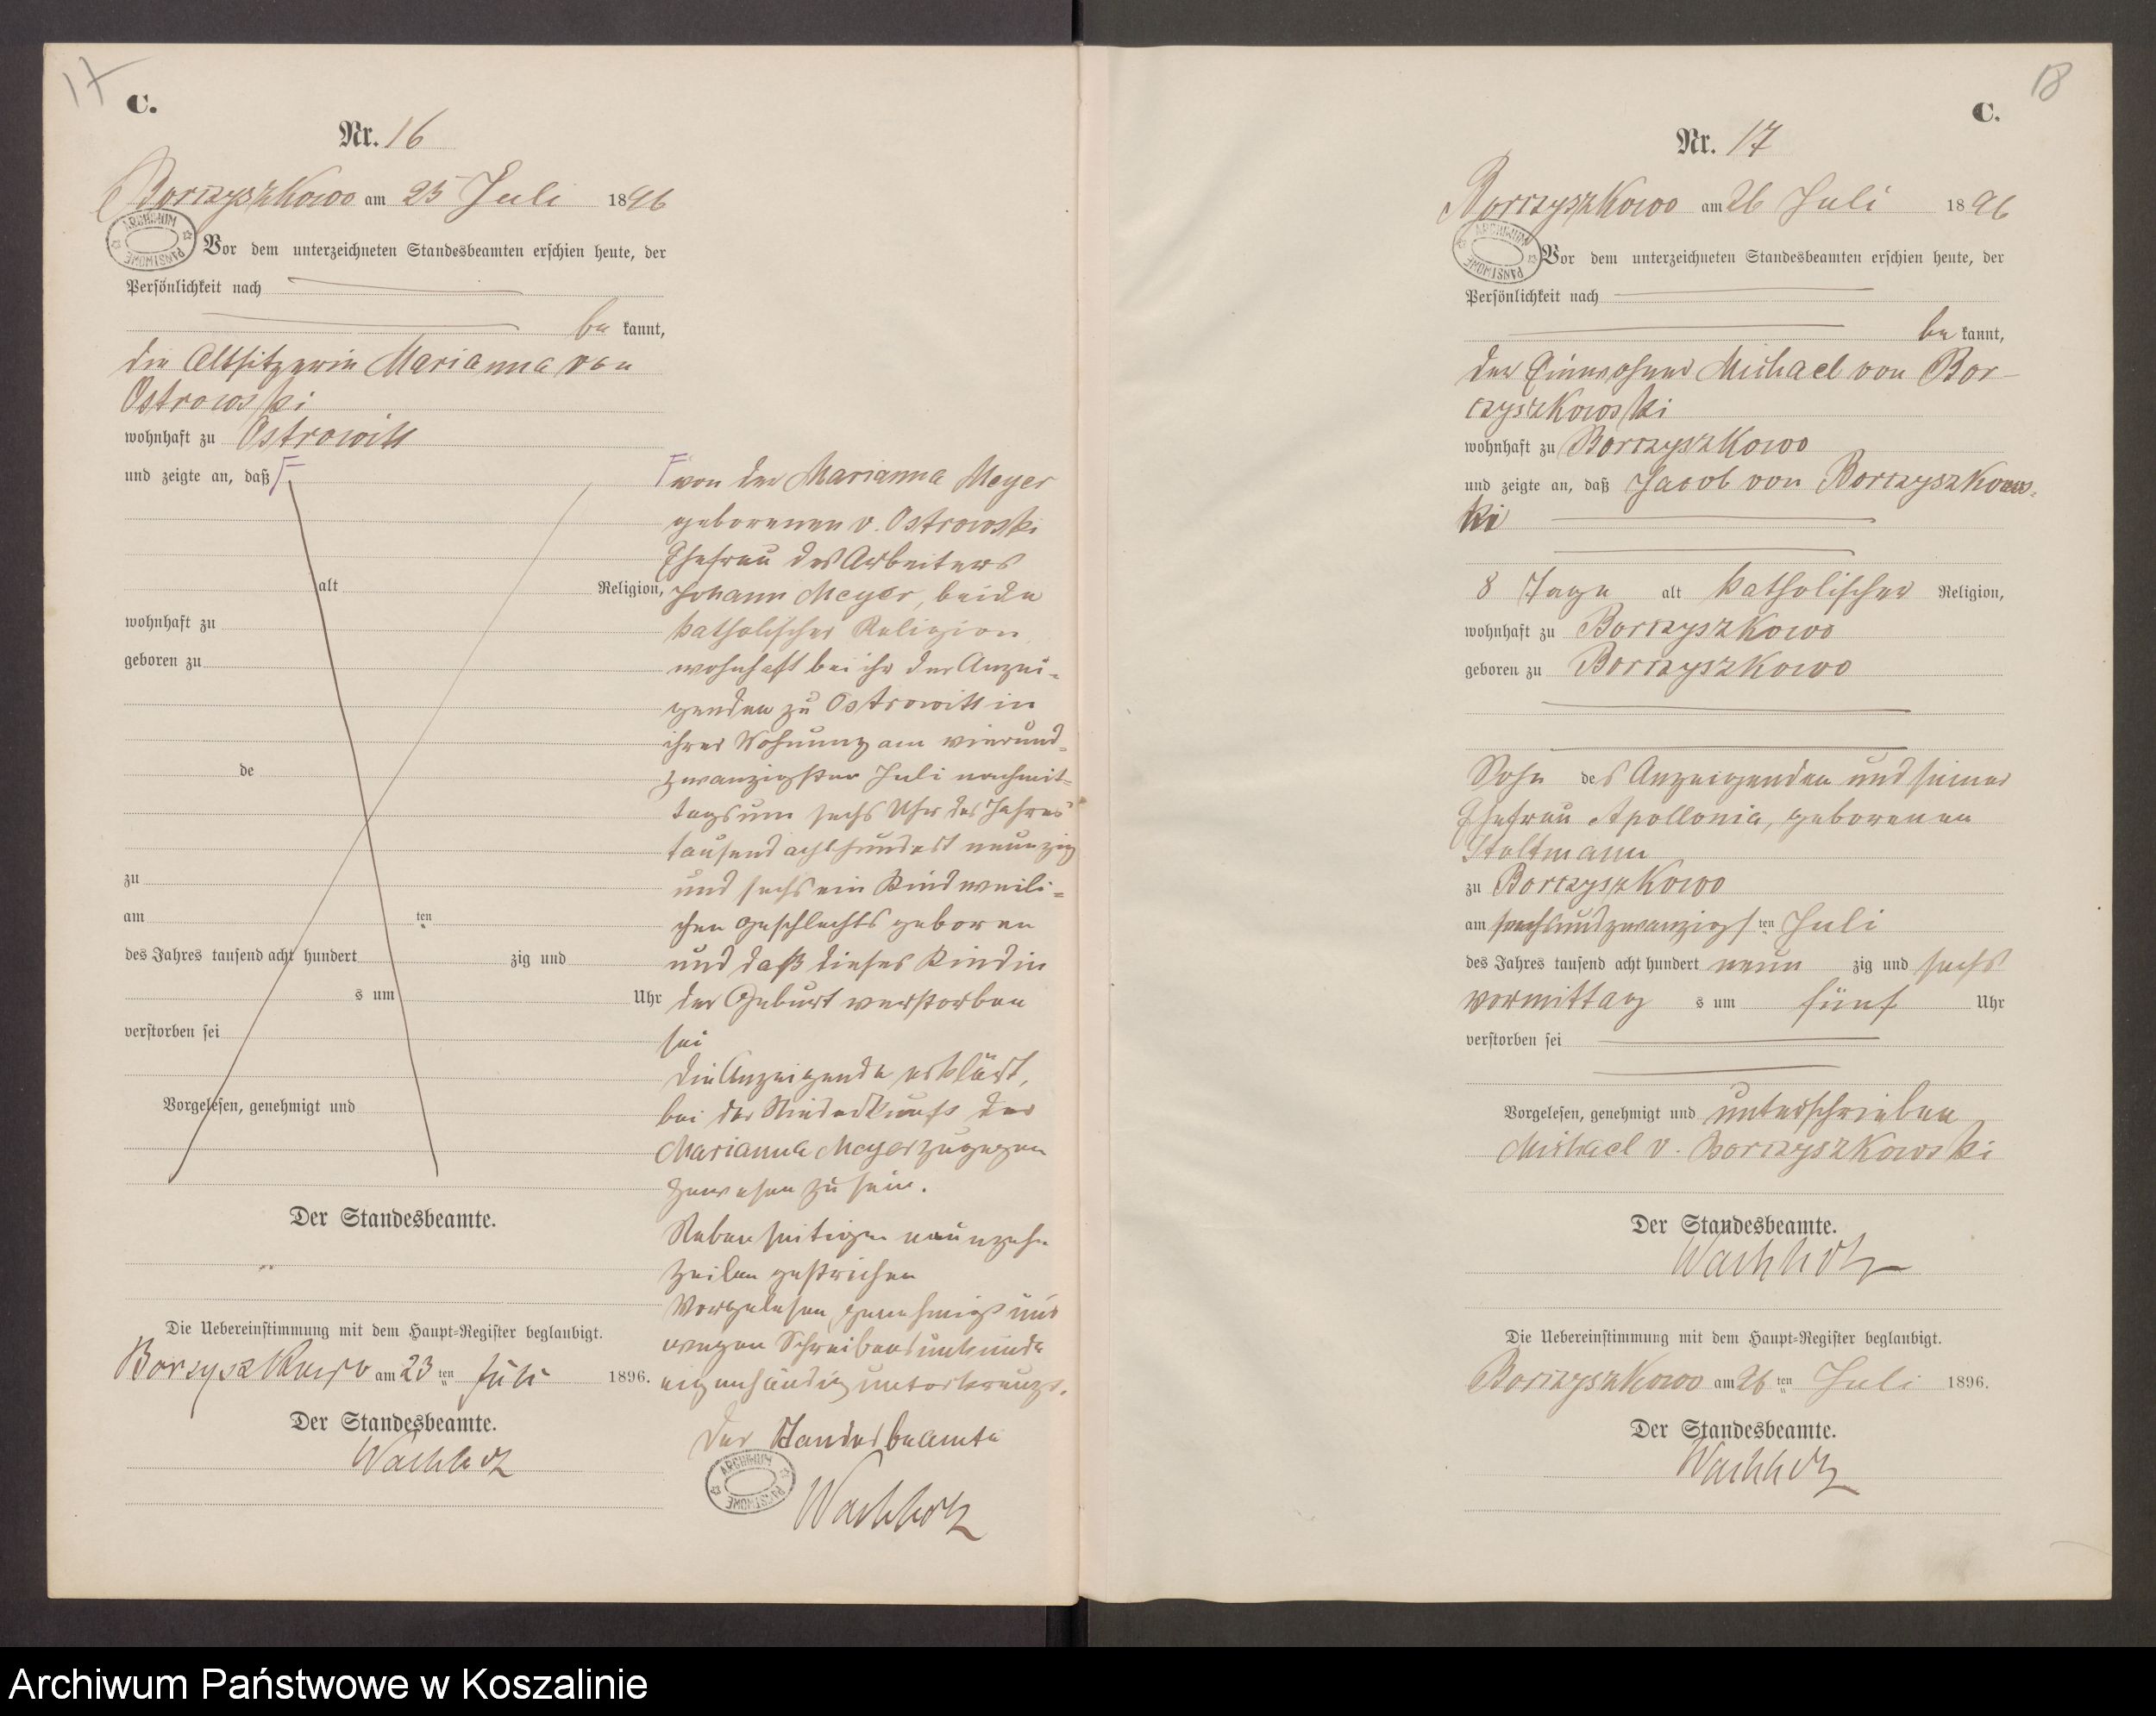 17
C.
Nr. 16
Borzyszkowo am 25 Juli 1896
ARCHIWUM PAŃSTWOWE
Vor dem unterzeichneten Standesbeamten erschien heute, der
Persönlichkeit nach
be kannt,
die Altsitzerin Marianna von
Ostrowski
wohnhaft zu Ostrowitt
und zeigte an, daß F
alt Religion,
wohnhaft zu
geboren zu
de
zu
am ten
des Jahres tausend acht hundert zig und
s um Uhr
verstorben sei
Vorgelesen, genehmigt und
Der Standesbeamte.
Die Uebereinstimmung mit dem Haupt-Register beglaubigt.
Borzyszkowo am 23 ten Juli 1896.
Der Standesbeamte.
Wachholz
F von der Marianna Meyer
geborenen v. Ostrowski
Ehefrau des Arbeiters
Johann Meyer, beide
katholischer Religion
wohnhaft bei ihr der Anzei-
genden zu Ostrowitt in
ihrer Wohnung am vierund-
zwanzigsten Juli nachmit-
tags um sechs Uhr des Jahres
tausend achthundert neunzig
und sechs ein Kind weibli-
chen Geschlechts geboren
und daß dieses Kind in
der Geburt verstorben
sei
Die Anzeigende erklärt,
bei der Niederkunft der
Marianna Meyer zugegen
gewesen zu sein.
Nebenseitige neunzehn
Zeilen gestrichen
Vorgelesen, genehmigt und
wegen Schreibensunkunde
eigenhändig unterkreuzt.
Der Standesbeamte
ARCHIWUM PAŃSTWOWE
Wachholz
18
C.
Nr. 17
Borzyszkowo am 26 Juli 1896
ARCHIWUM PAŃSTWOWE
Vor dem unterzeichneten Standesbeamten erschien heute, der
Persönlichkeit nach
be kannt,
der Einwohner Michael von Bor-
czyszkowski
wohnhaft zu Borzyszkowo
und zeigte an, daß Jacob von Borzyszkows-
ki
8 Tage alt katholischer Religion,
wohnhaft zu Borzyszkowo
geboren zu Borzyszkowo
Sohn des Anzeigenden und seiner
Ehefrau Apollonia, geborenen
Stoltmann
zu Borzyszkowo
am sechsundzwanzigs ten Juli
des Jahres tausend acht hundert neun zig und sechs
vormittag s um fünf Uhr
verstorben sei
Vorgelesen, genehmigt und unterschrieben
Michael v. Borzyszkowski
Der Standesbeamte.
Wachholz
Die Uebereinstimmung mit dem Haupt-Register beglaubigt.
Borzyszkowo am 26 ten Juli 1896.
Der Standesbeamte.
Wachholz
Archiwum Państwowe w Koszalinie